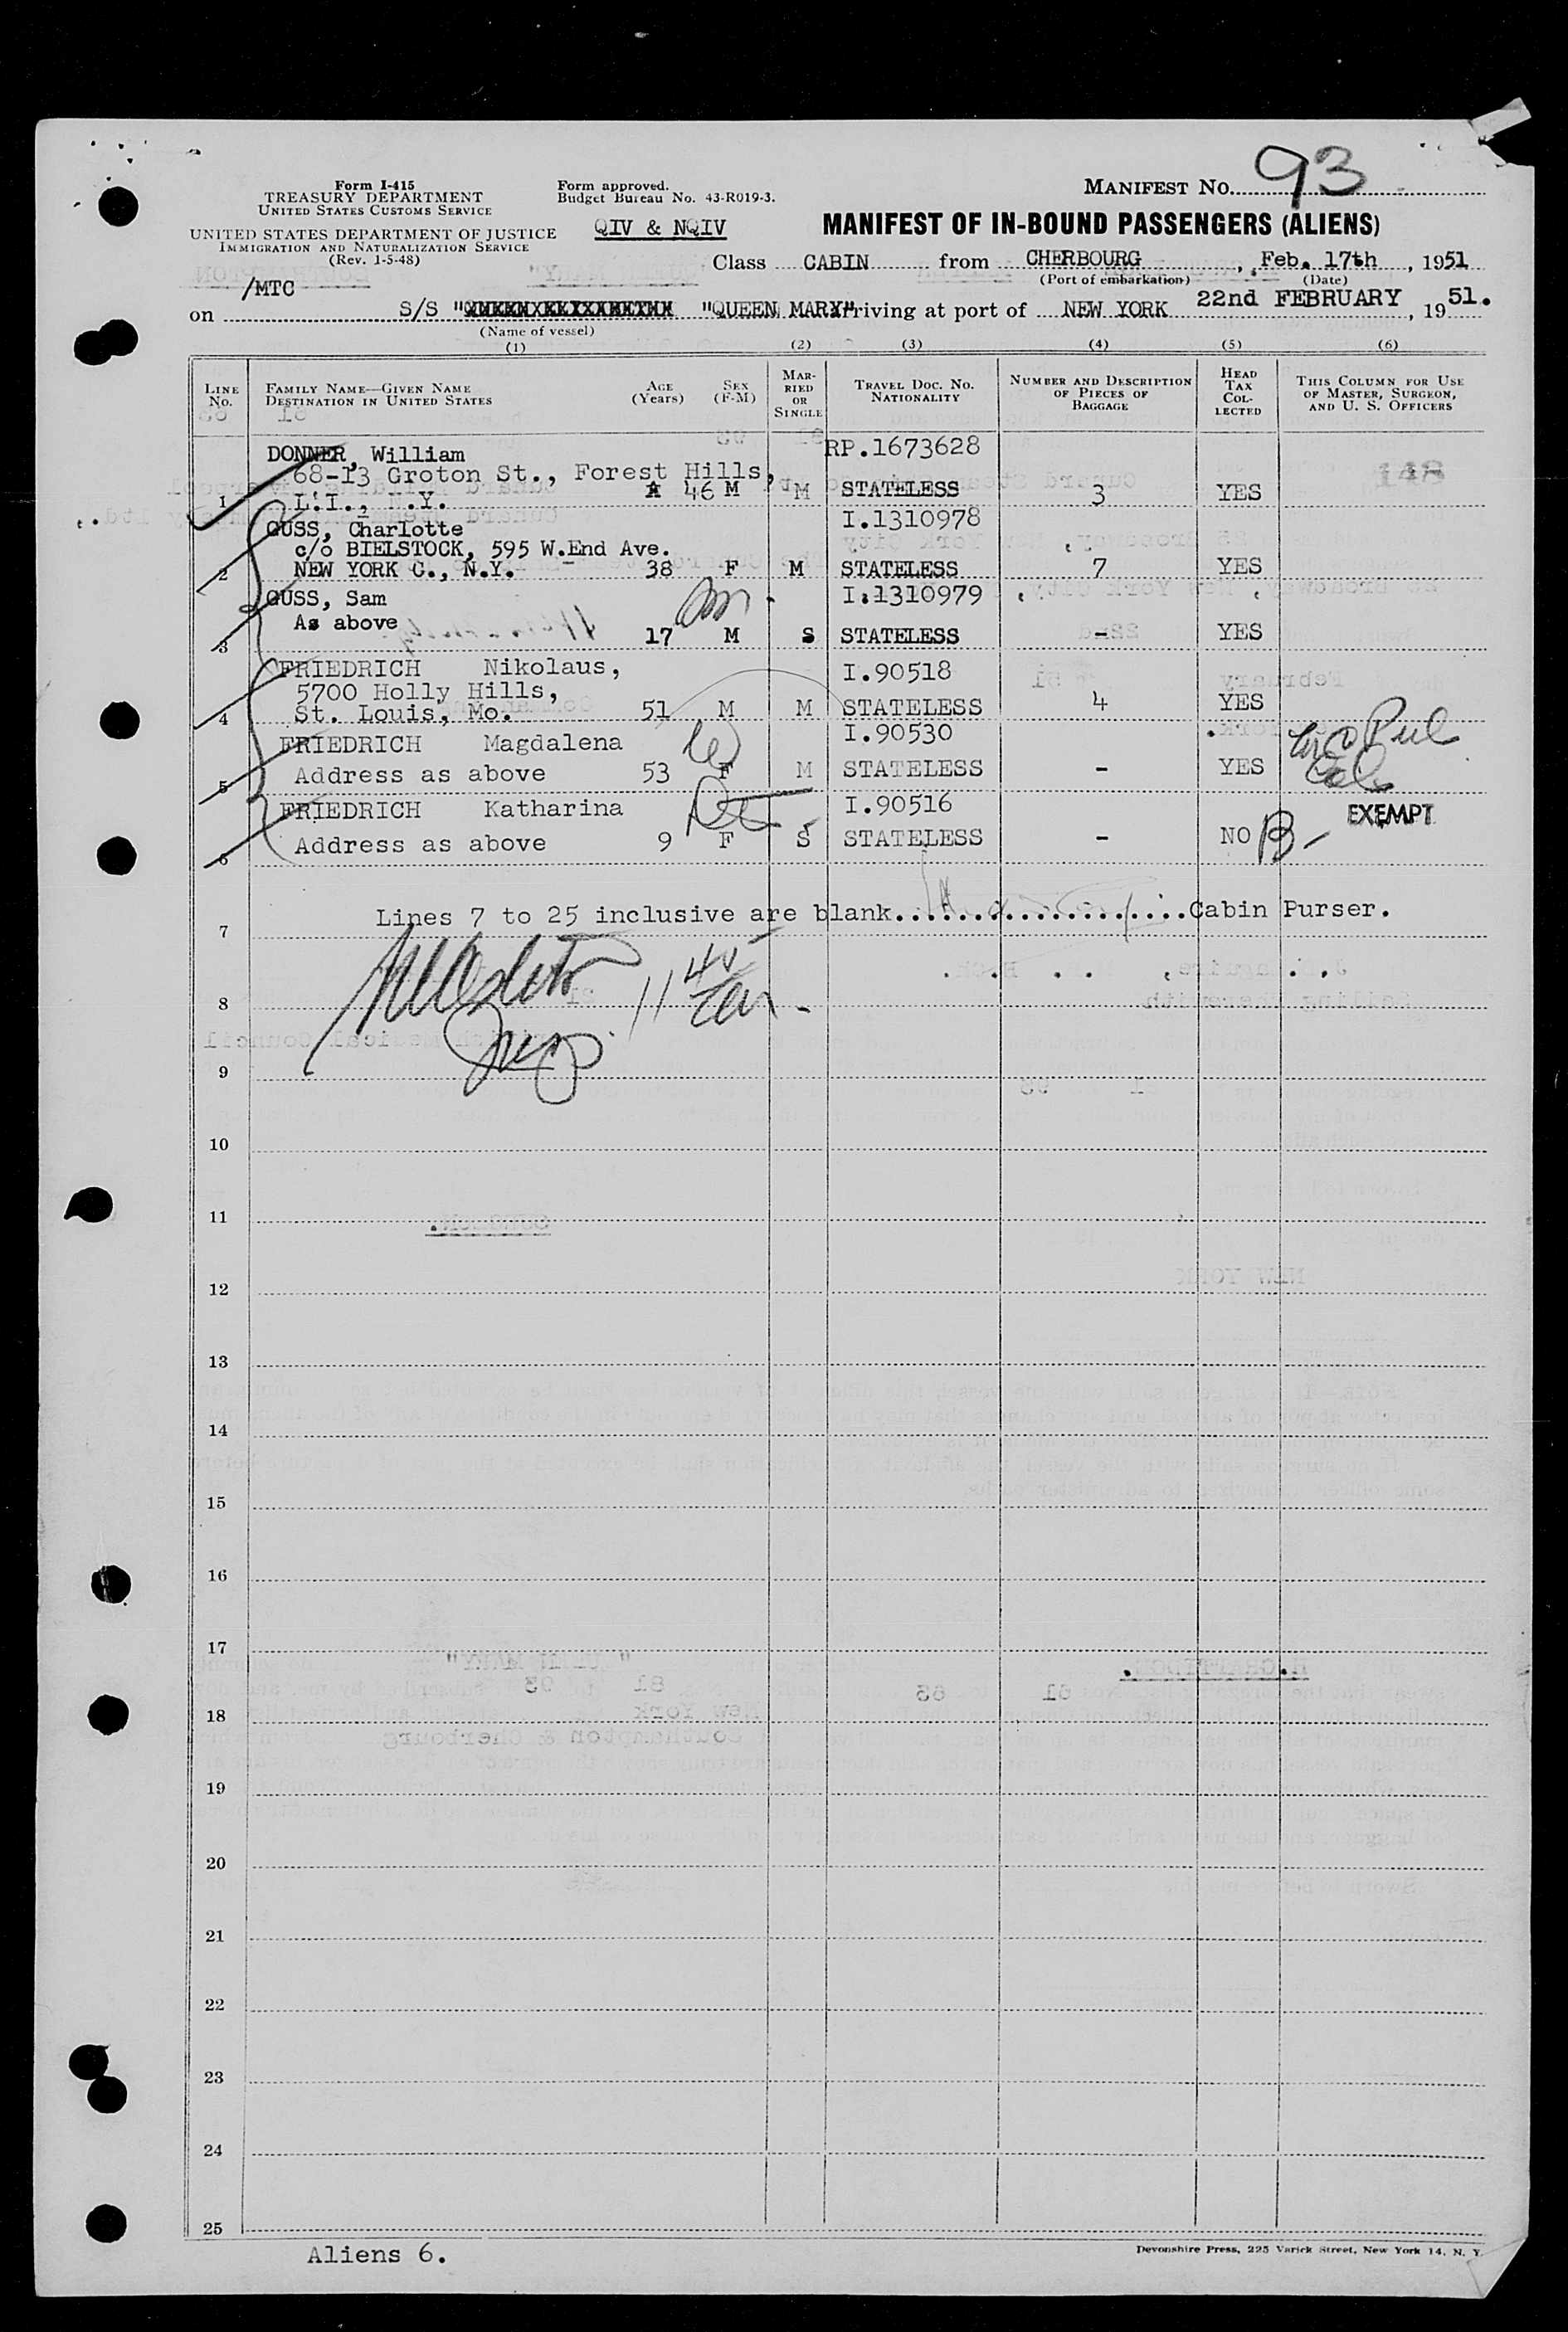 Form I-415
TREASURY DEPARTMENT
UNITED STATES CUSTOMS SERVICE
UNITED STATES DEPARTMENT OF JUSTICE
IMMIGRATION AND NATURALIZATION SERVICE
(Rev. 1-5-48)
Form approved.
Budget Bureau No. 43-R019-3.
QIV & NQIV
MANIFEST NO. 93
MANIFEST OF IN-BOUND PASSENGERS (ALIENS)
Class CABIN from CHERBOURG, Feb. 17th, 1951
(Port of embarkation) (Date)
/MTC
on S/S "QUEEN MARY" arriving at port of NEW YORK 22nd FEBRUARY, 1951.
(Name of vessel)
(1) (2) (3) (4) (5) (6)
LINE NO. FAMILY NAME—GIVEN NAME DESTINATION IN UNITED STATES AGE (Years) SEX (F-M) MARRIED OR SINGLE TRAVEL DOC. NO. NATIONALITY NUMBER AND DESCRIPTION OF PIECES OF BAGGAGE HEAD TAX COLLECTED THIS COLUMN FOR USE OF MASTER, SURGEON, AND U. S. OFFICERS
DONNER, William RP.1673628
68-13 Groton St., Forest Hills,
1 L.I., N.Y. 46 M M STATELESS 3 YES
GUSS, Charlotte I.1310978
c/o BIELSTOCK, 595 W.End Ave.
2 NEW YORK C., N.Y. 38 F M STATELESS 7 YES
GUSS, Sam I.1310979
As above
3 17 M S STATELESS - YES
FRIEDRICH Nikolaus, I.90518
5700 Holly Hills,
4 St. Louis, Mo. 51 M M STATELESS 4 YES
FRIEDRICH Magdalena I.90530
5 Address as above 53 F M STATELESS - YES
FRIEDRICH Katharina I.90516 EXEMPT
6 Address as above 9 F S STATELESS - NO B-
Lines 7 to 25 inclusive are blank..................Cabin Purser.
7
8
9
10
11
12
13
14
15
16
17
18
19
20
21
22
23
24
25
Aliens 6.
Devonshire Press, 225 Varick Street, New York 14, N. Y.